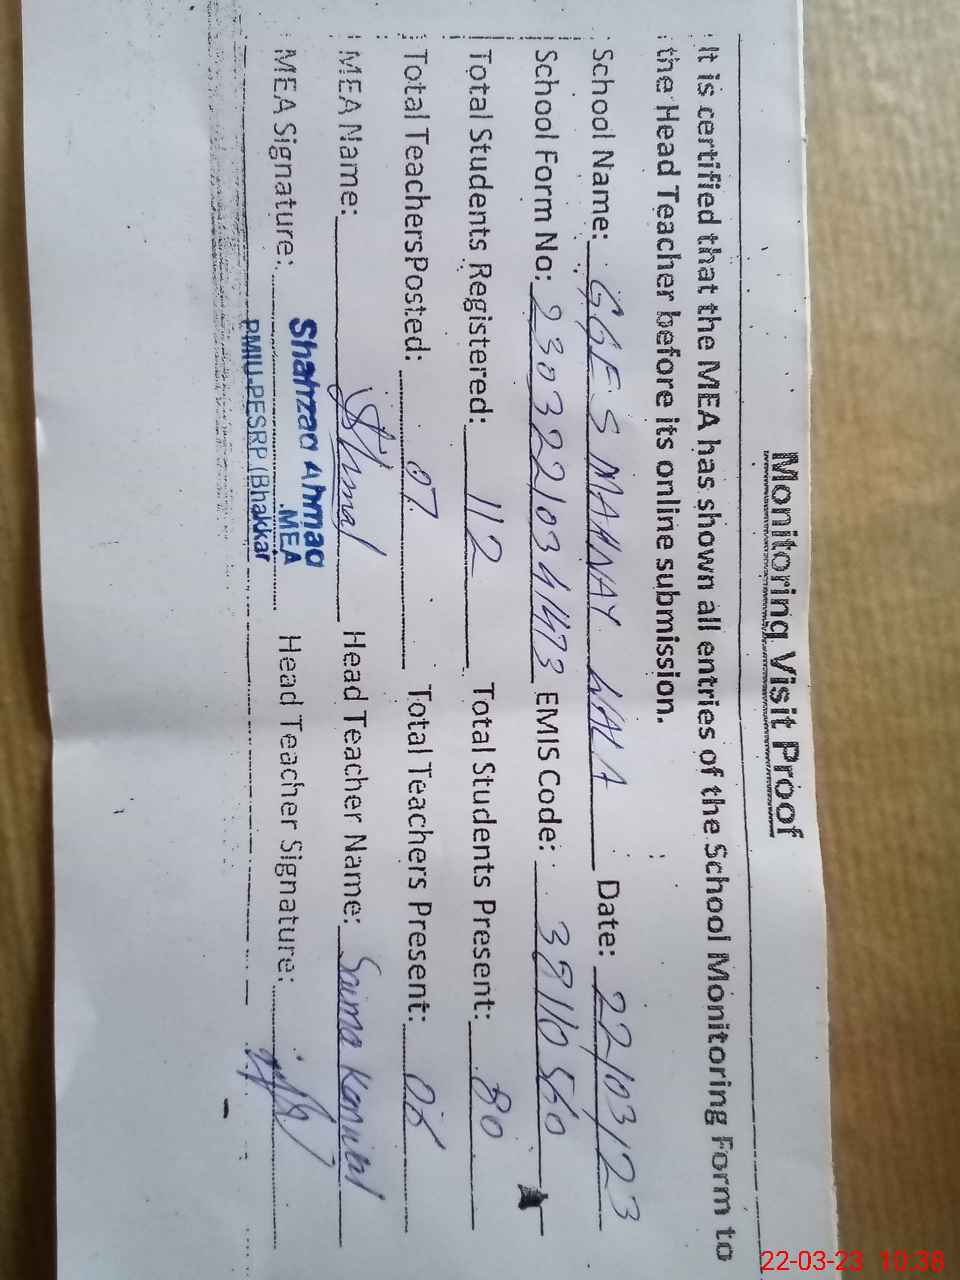 Monitoring Visit Proof
It is certified that the MEA has shown all entries of the School Monitoring Form to
the Head Teacher before its online submission.
School Name: GGES MAHNAY WALA Date: 22/03/23
School Form No: EMIS Code: 38110560
Total Students Registered: 112 Total Students Present: 80
Total TeachersPosted: 07 Total Teachers Present: 06
MEA Name: Head Teacher Name: Saima Kanwal
MEA Signature: Head Teacher Signature:
Shahzad Ahmad
MEA
PMIU-PESRP (Bhakkar
22-03-23 10:38